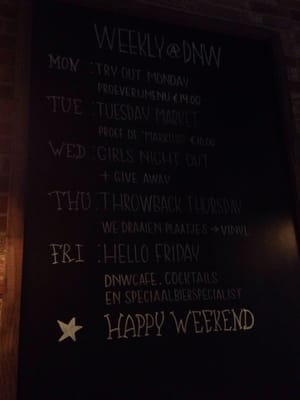 WEEKLY@DNW
MON : TRY OUT MONDAY
PROEVERIJMENU €19.00
TUE : TUESDAY MARKET
PROEF DE "MARKTUI" €10.00
WED : GIRLS NIGHT OUT
+ GIVE AWAY
THU : THROWBACK THURSDAY
WE DRAAIEN PLAATJES → VINYL
FRI : HELLO FRIDAY
DNWCAFE. COCKTAILS
EN SPECIAALBIERSPECIALIST
HAPPY WEEKEND